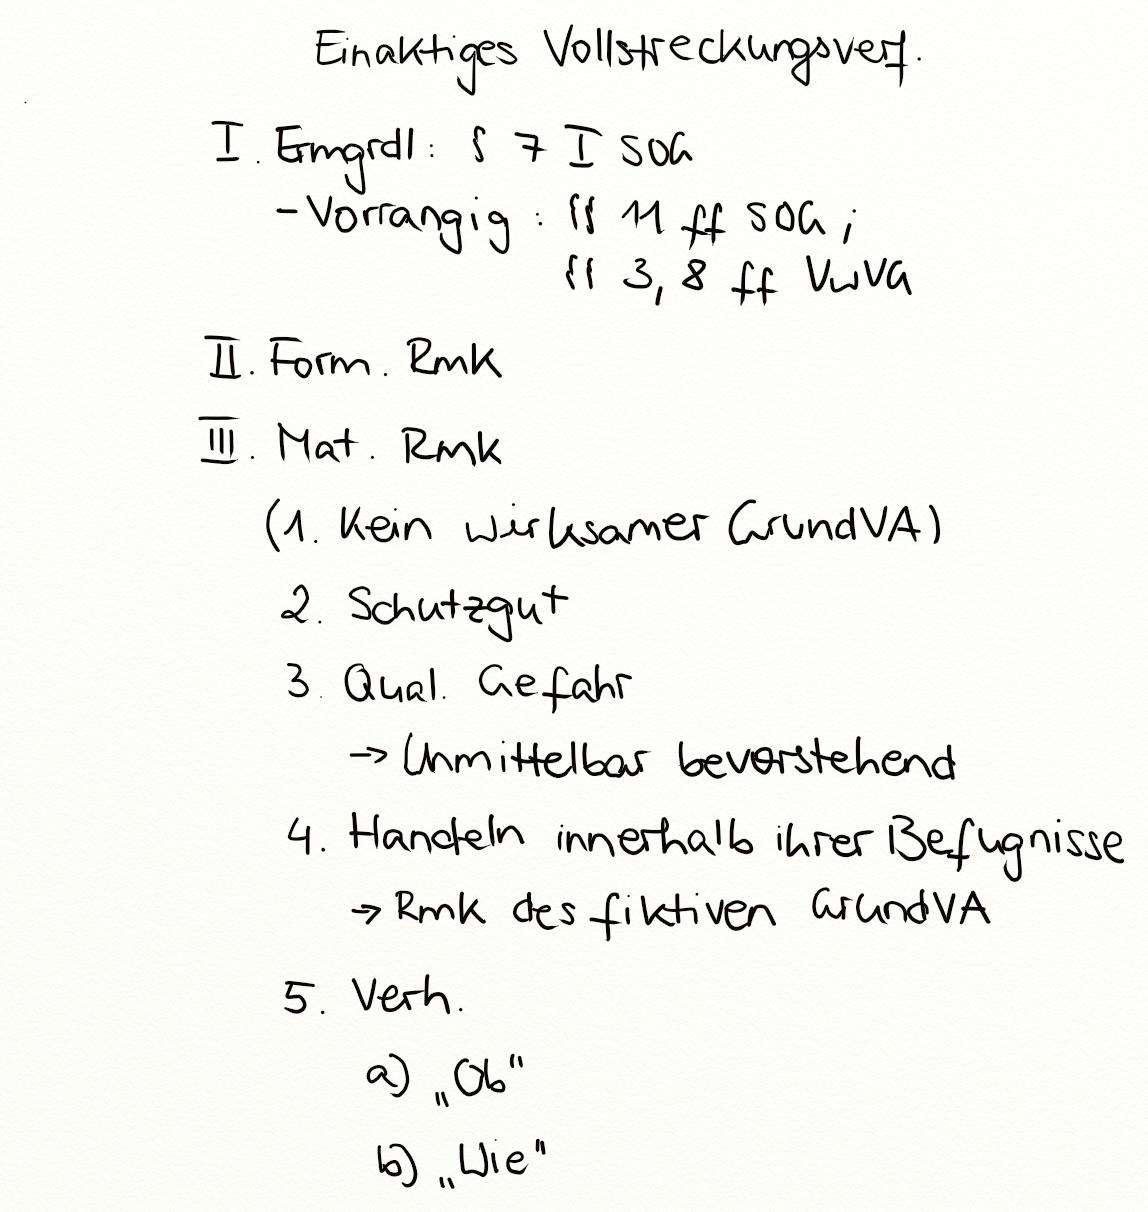 Einaktiges Vollstreckungsverf.
I. Ermgrdl: § 7 I SOG
- Vorrangig: §§ 11 ff SOG;
§§ 3, 8 ff VwVG
II. Form. Rmk
III. Mat. Rmk
(1. Kein wirksamer GrundVA)
2. Schutzgut
3. Qual. Gefahr
→ Unmittelbar bevorstehend
4. Handeln innerhalb ihrer Befugnisse
→ Rmk des fiktiven GrundVA
5. Verh.
a) „Ob"
b) „Wie"